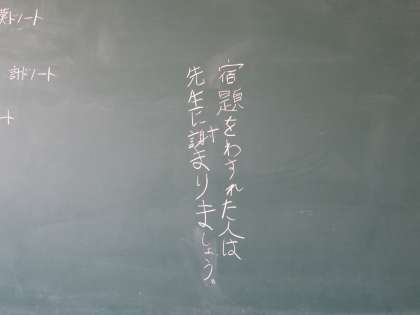 宿題をわすれた人は
先生に謝まりましょう。
漢ドノート
計ドノート
ート